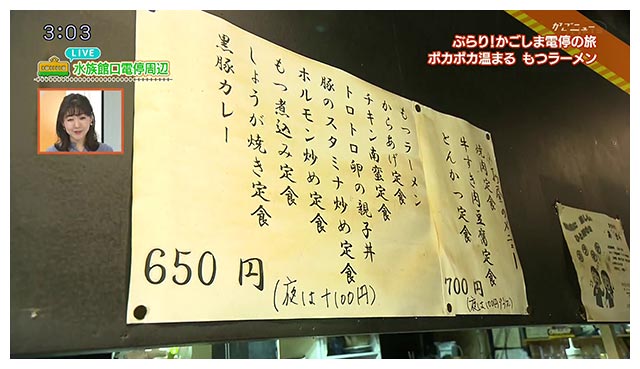 3:03
LIVE
水族館口電停周辺
かごニュー
ぶらり!かごしま電停の旅
ポカポカ温まる もつラーメン
メニュー
焼肉定食
牛すき肉豆腐定食
とんかつ定食
700円
(夜は100円プラス)
もつラーメン
からあげ定食
チキン南蛮定食
トロトロ卵の親子丼
豚のスタミナ炒め定食
ホルモン炒め定食
もつ煮込み定食
しょうが焼き定食
黒豚カレー
650円
(夜は+100円)